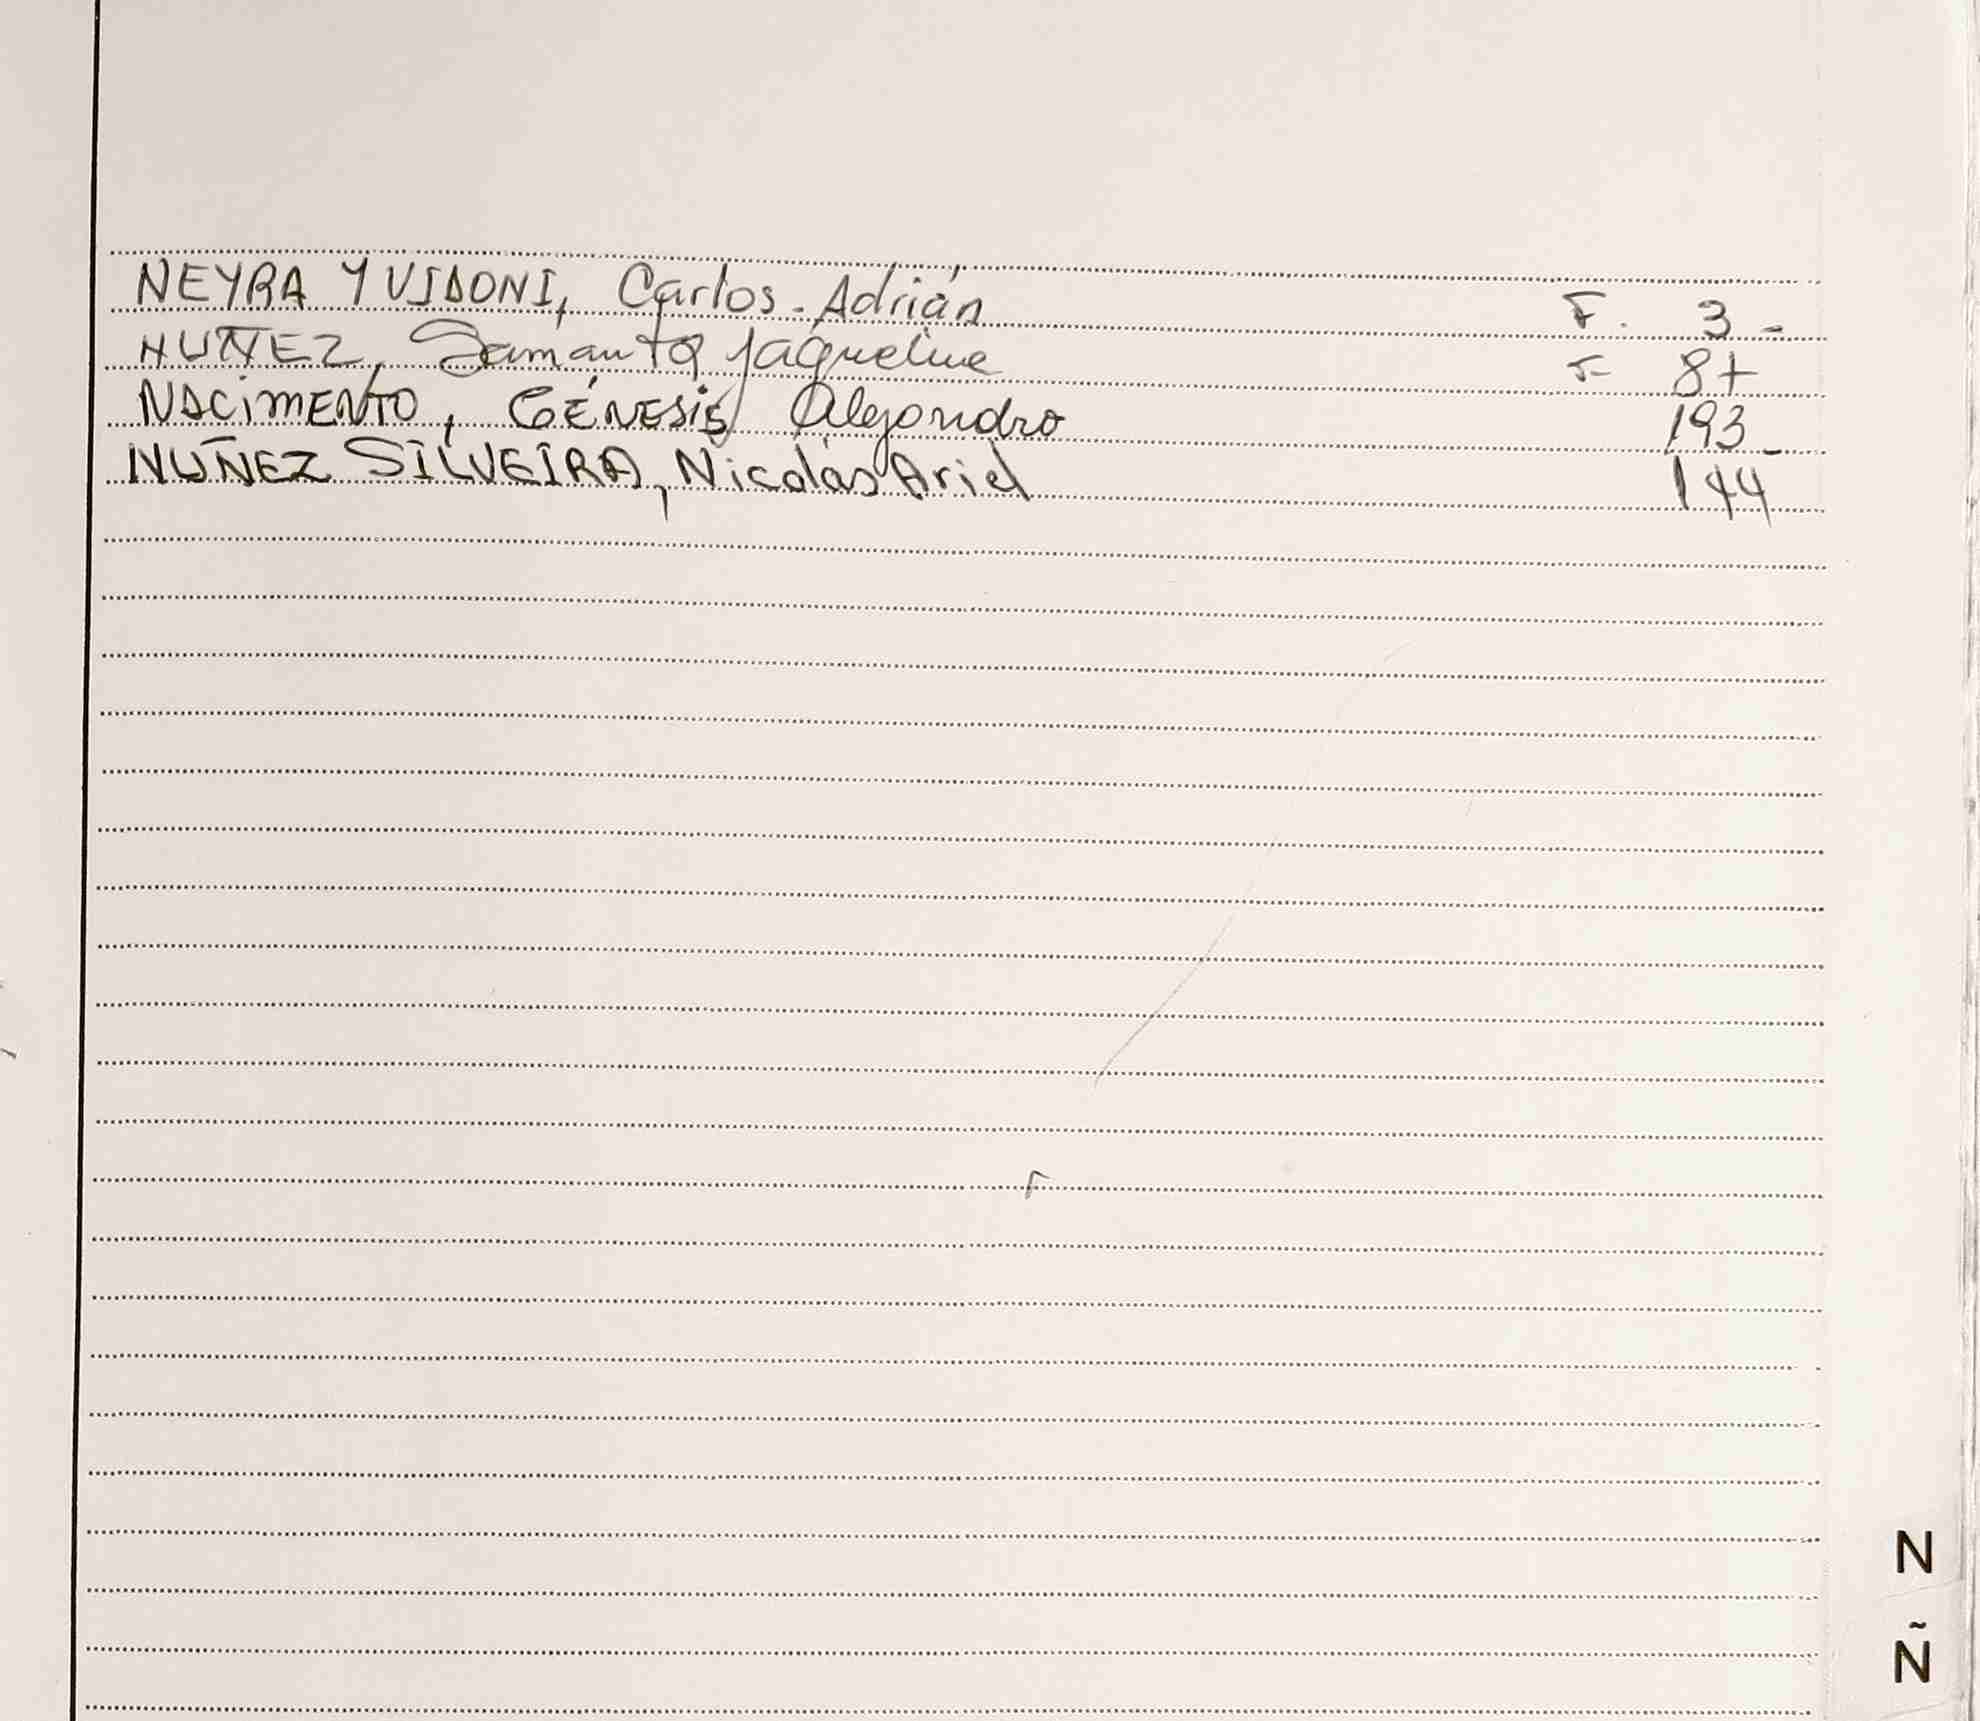 NEYRA Y VIDONI, Carlos-Adrián F. 3-
NUÑEZ, Samanta Jaqueline F 8+
NACIMENTO, GÉNESIS Alejandro 193
NUÑEZ SILVEIRA, Nicolás Ariel 144
N
Ñ